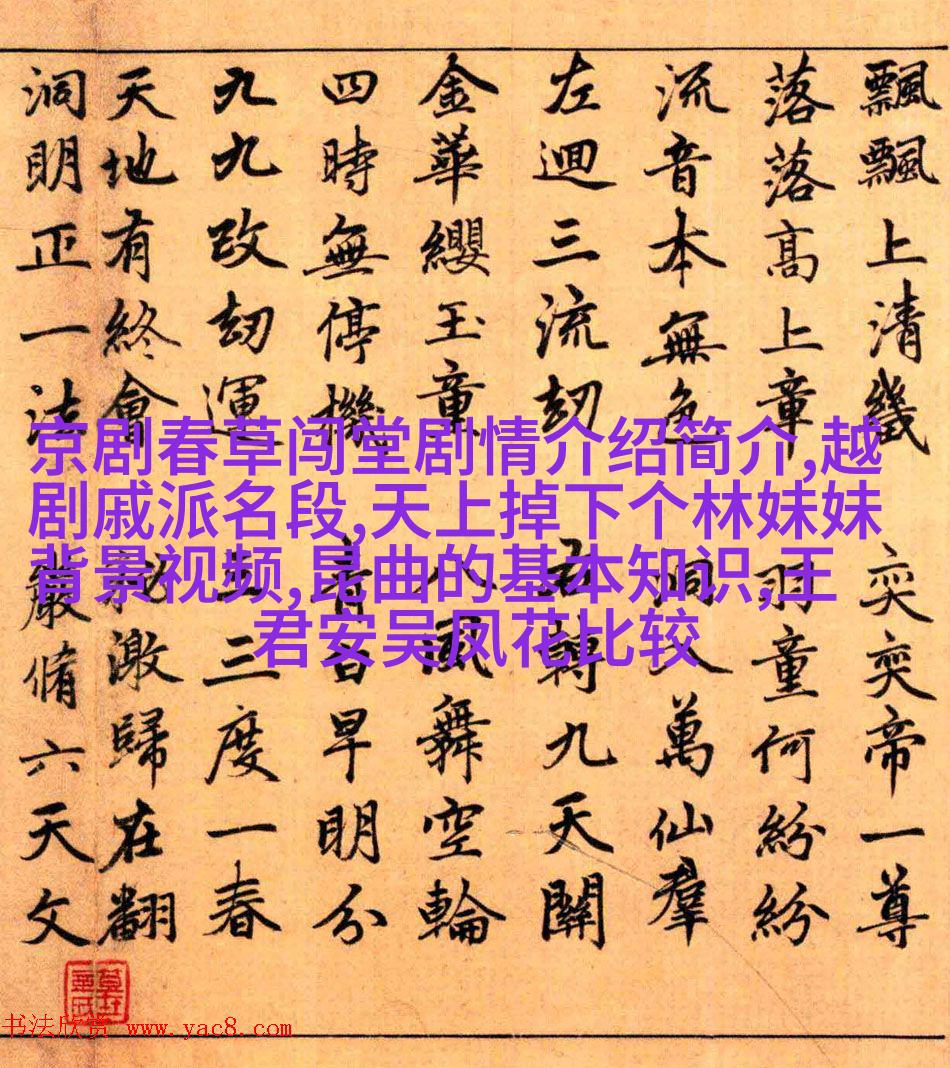 飄飄上清畿 奕奕帝一尊
落落高上章 羽童何紛紛
流音本無色 洞文萬仙羣
左迴三流刼 轉九天關
金華纓玉童 八風舞空輪
四時無停機 早明分
九九改刼運 三三度一春
天地有終會 激歸在翻
洞明正一法 嚴脩六天文
京剧春草闯堂剧情介绍简介,越
剧戚派名段,天上掉下个林妹妹
背景视频,昆曲的基本知识,王
君安吴凤花比较
书法欣赏 www.yac8.com